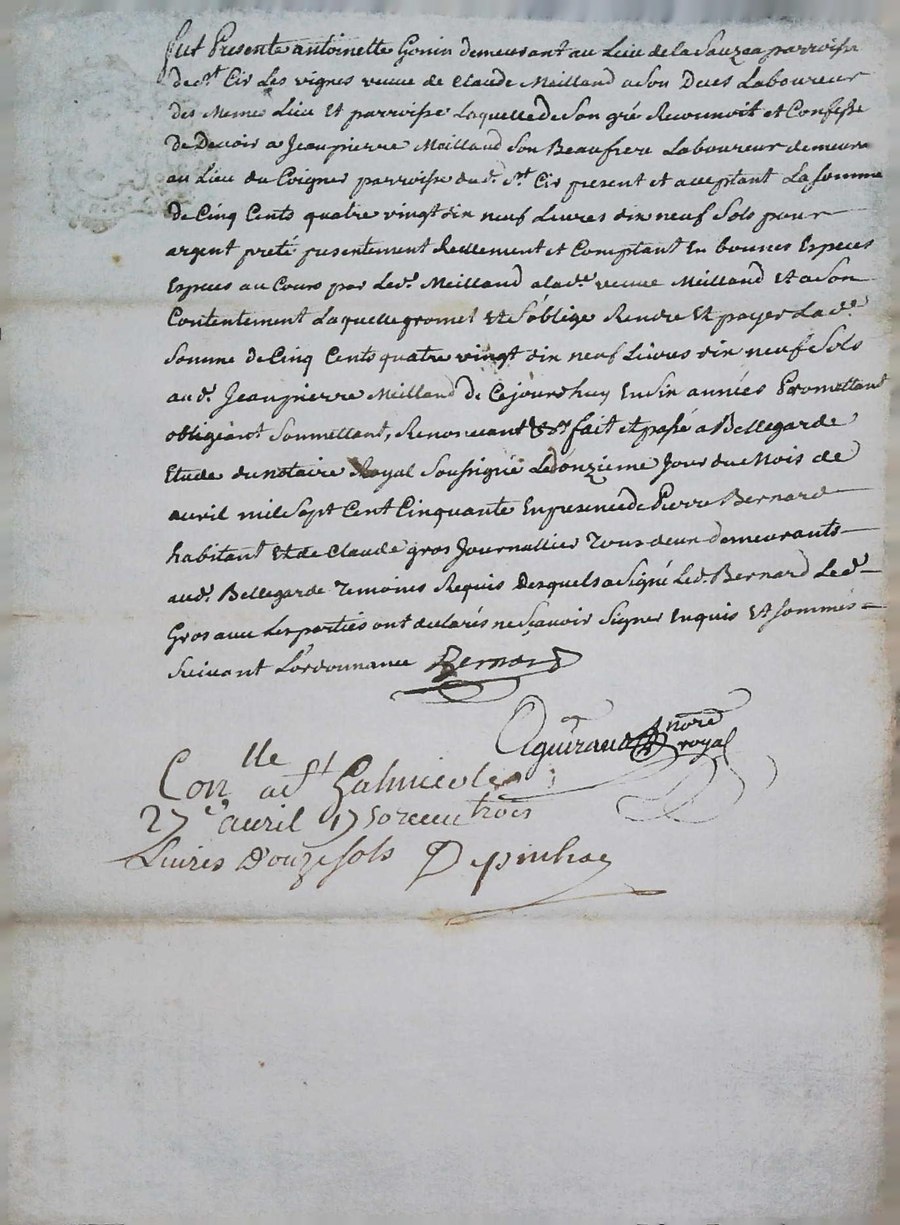 fut Presente antoinette Gonin demeurant au Lieu de la Sauzea parroisse
de st. Cir Les vignes veuve de Claude Meilland a son Deces Laboureur
des Meme Lieu Et parroisse Laquelle De Son gré Reconnoit et Confesse
de Devoir a Jeanpierre Meilland Son Beaufrere Laboureur demeurant
au Lieu du Coignet parroisse dud. st. Cir present et acceptant La somme
de Cinq Cents quatre vingt dix neuf Livres dix neuf Sols pour
argent preté presentement Reellement et Comptant En bonnes Especes
Especes au Cours par Led. Meilland a lade. veuve Meilland Et a Son
Contentement Laquelle promet Et S'oblige Rendre Et payer Lade.
Somme de Cinq Cents quatre vingt dix neuf Livres dix neuf Sols
aud. Jeanpierre Meilland De Cejourdhuy En Six années Promettant
obligeant Soumettant, Renonceant &a fait et passé a Bellegarde
Etude du notaire Royal Soussigné Le donzieme Jour du Mois de
avril mil Sept Cent Cinquante En presence de Pierre Bernard
habitant Et de Claude gros Journallier Tous deux demeurants
aud. Bellegarde Temoins Requis Desquels a Signé Led. Bernard Led.
Gros avec Les parties ont declarés ne Sçavoir Signer Enquis Et Sommés
Suivant L'ordonnance Bernard
Aguiraud nore
royal
Conlle a st Galmier le
27e avril 1750 receu trois
Livres Douze sols Depinhac